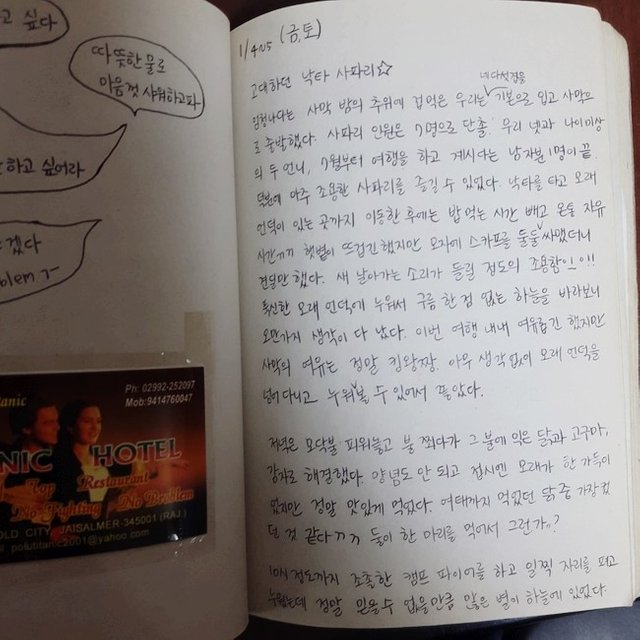 고 싶다
따뜻한 물로
마음껏 샤워하고파
하고 싶어라
겠다
oblem ㄱ-
anic
Ph: 02992-252097
Mob:9414760047
NIC HOTEL
Top Restaurant
No Fighting No Problem
OLD CITY JAISALMER-345001 (RAJ.)
polutitanic2001@yahoo.com
1/4~5 (금,토)
그대하던 낙타 사파리☆
네다섯겹을
엄청나다는 사막 밤의 추위에 겁먹은 우리는 ∨ 기본으로 입고 사막으
로 출발했다. 사파리 인원은 7명으로 단촐. 우리 넷과 나이이상
의 두 언니, 7월부터 여행을 하고 계시다는 남자분 1명이 끝.
덕분에 아주 조용한 사파리를 즐길 수 있었다. 낙타를 타고 모래
언덕이 있는 곳까지 이동한 후에는 밥 먹는 시간 빼고 온통 자유
시간ㄲㄲ 햇볕이 뜨겁긴 했지만 모자에 스카프를 둘둘 싸맸더니
견딜만 했다. 새 날아가는 소리가 들릴 정도의 조용함이!!
푹신한 모래 언덕에 누워서 구름 한점 없는 하늘을 바라보니
오만가지 생각이 다 났다. 이번 여행 내내 여유롭긴 했지만
사막의 여유는 정말 킹왕짱. 아무 생각없이 모래 언덕을
넘어다니고 누워볼 수 있어서 좋았다.
저녁은 모닥불 피워놓고 불 쬐다가 그 불에 익은 닭과 고구마,
감자로 해결했다. 양념도 안 되고 접시엔 모래가 한 가득이
었지만 정말 맛있게 먹었다. 여태까지 먹었던 닭중 가장 컸
던 것 같다ㄲㄲ 둘이 한 마리를 먹어서 그런가..?
10시 정도까지 조촐한 캠프 파이어를 하고 일찍 자리를 펴고
누웠는데 정말 믿을수 없을만큼 많은 별이 하늘에 있었다